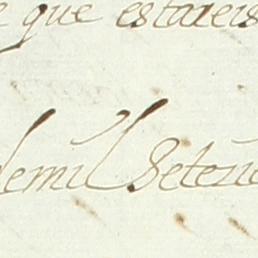 e que estareis
demil Setecie